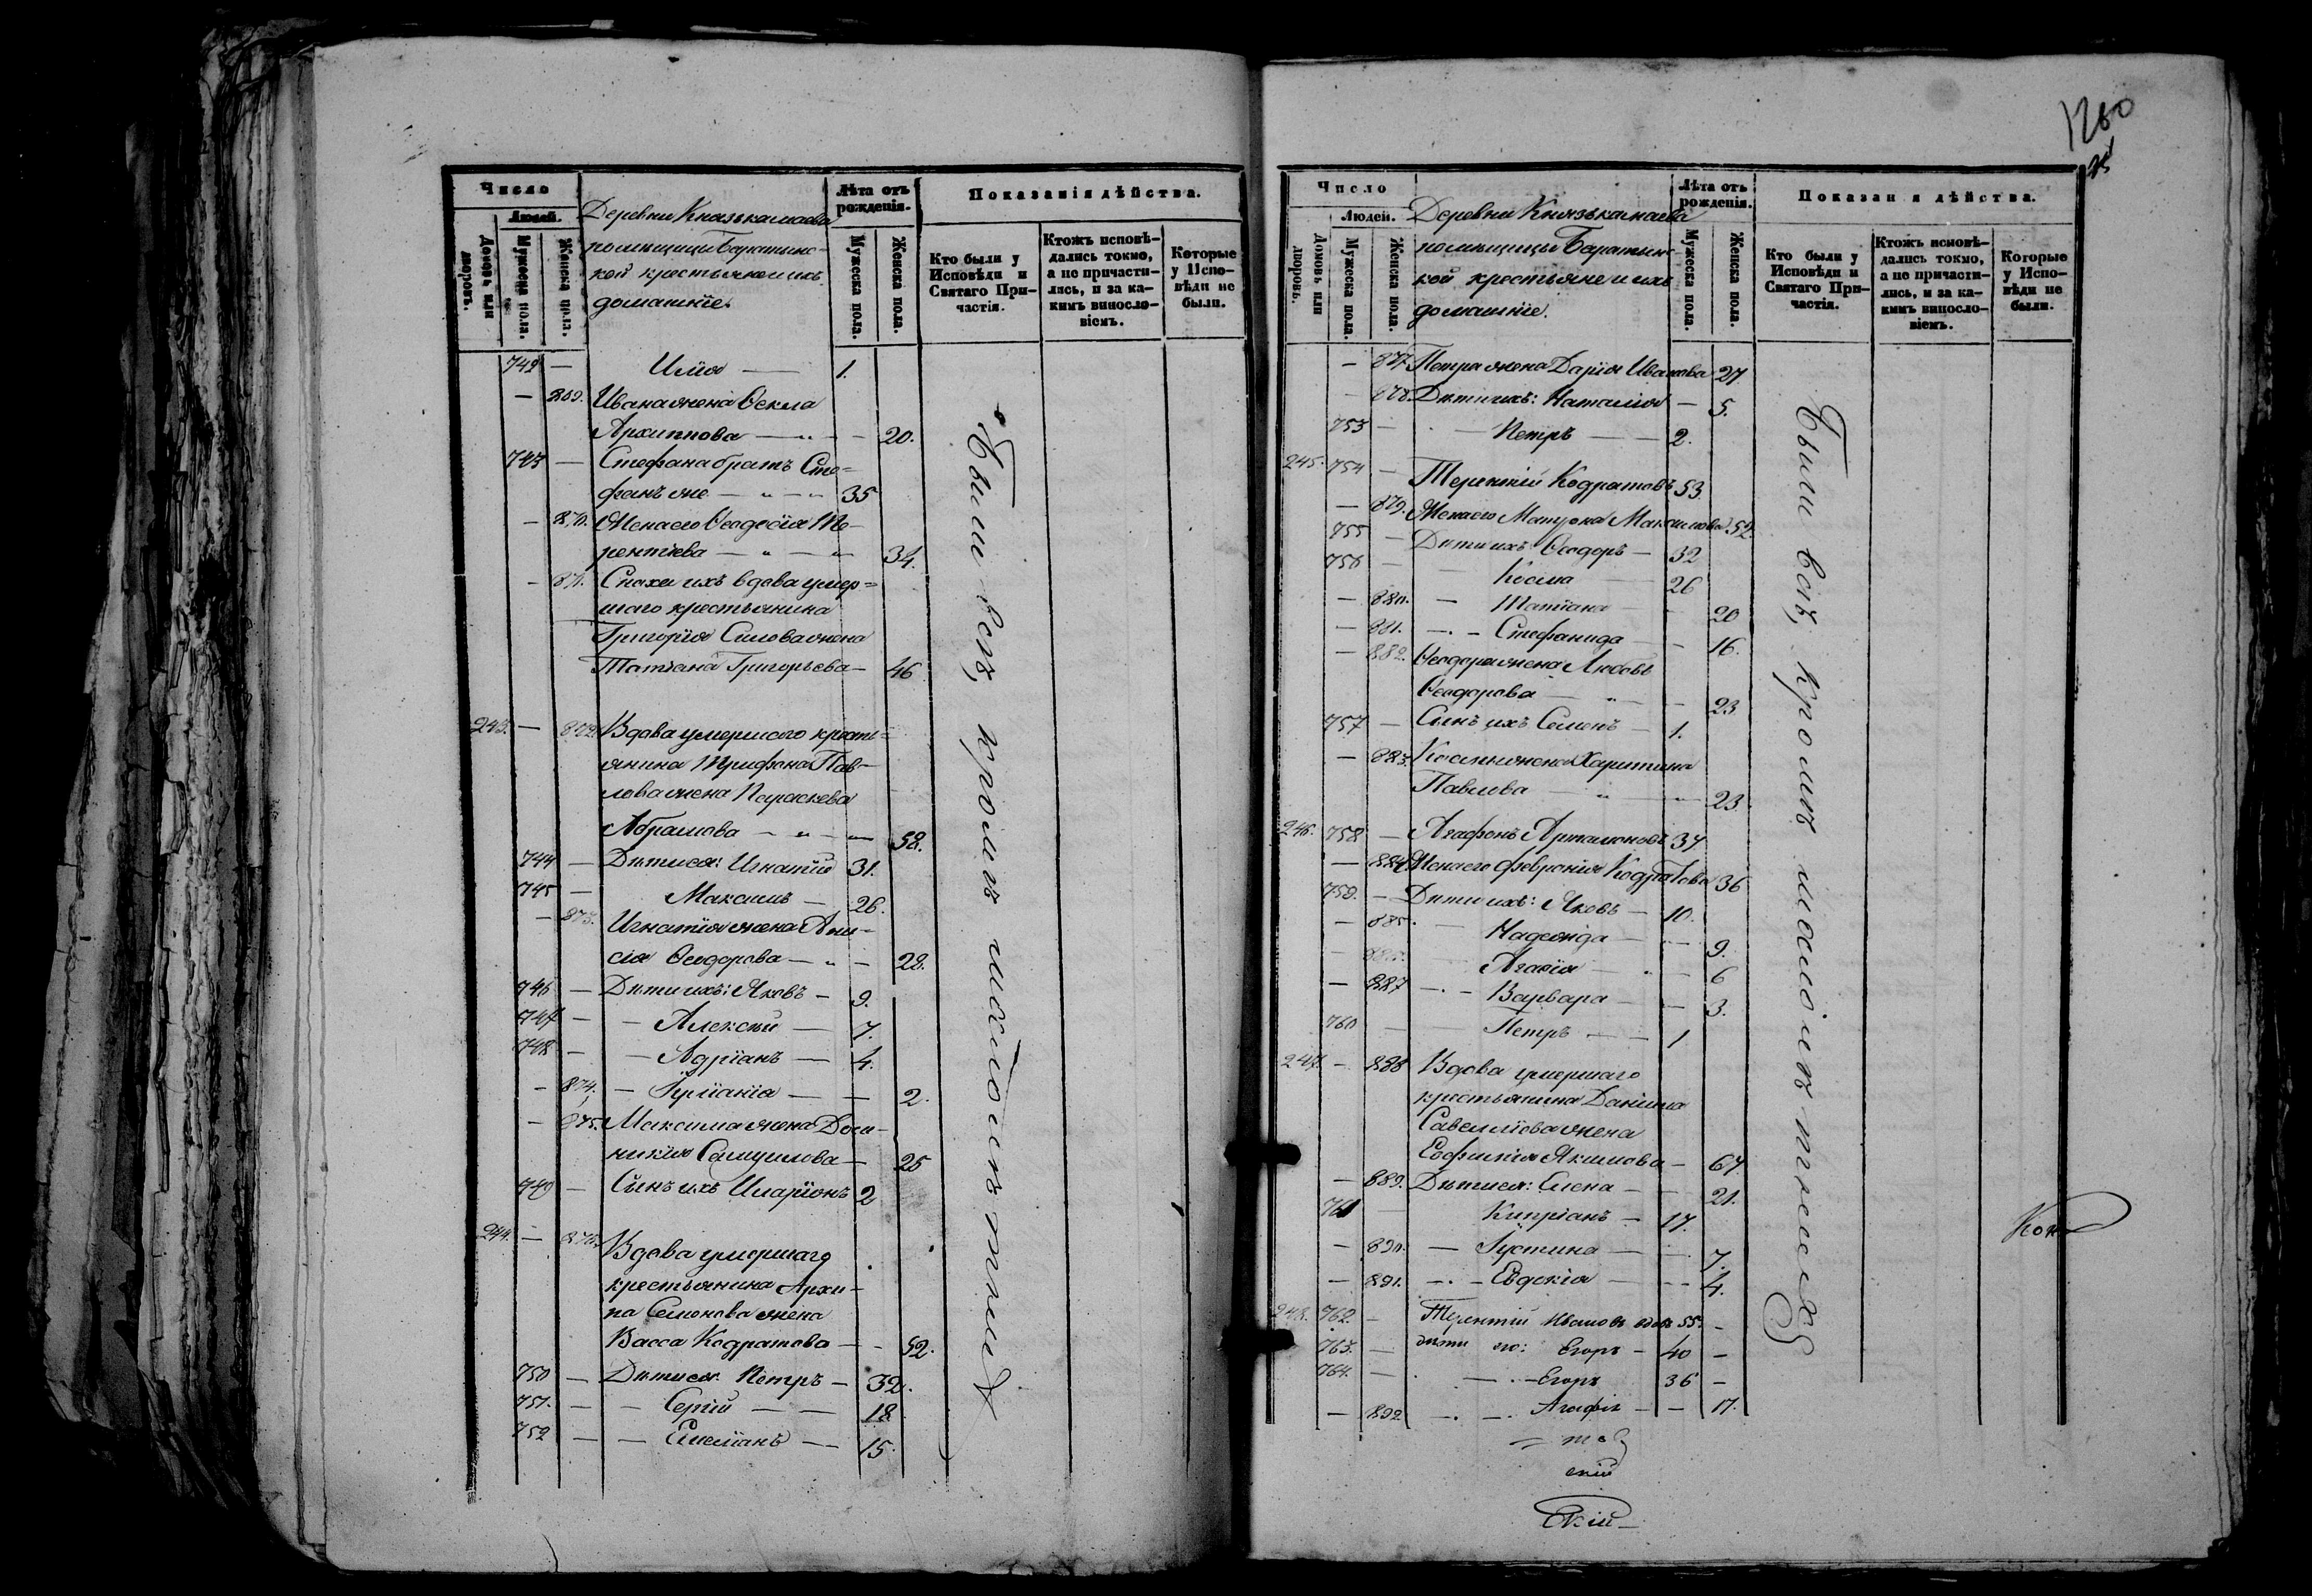 Число
Людей.
Домовъ или дворовъ.
Мужеска пола.
Женска пола.
Деревни Князькамаева
помѣщицы Баратынс-
кой крестьяне и ихъ
домашніе.
Лѣта отъ рожденія.
Мужеска пола.
Женска пола.
Показанія дѣйства.
Кто были у Исповѣди и Святаго Причастія.
Ктожъ исповѣ-
дались токмо,
а не причасти-
лись, и за ка-
кимъ винносло-
віемъ.
Которые
у Испо-
вѣди не
были.
742 — Илія — 1.
— 869. Ивана жена Ѳекла
Архиппова — 20.
743 — Стефана братъ Сте=
фанъ же — 35
— 870. Жена его Ѳеодосія Те-
рентіева — 34.
— 871. Сноха ихъ вдова умер=
шаго крестьянина
Григорія Силова жена
Татіана Григорьева — 46
243. — 872. Вдова умершаго кресть=
янина Трифона Пав-
лова жена Параскева
Абрамова — 58.
744 — Дѣти ея: Игнатій 31.
745 — Максимъ — 26.
— 873. Игнатія жена Ани-
сія Ѳеодорова — 28.
746 — Дѣти ихъ: Яковъ — 9.
747 — Алексѣй — 7.
748 — Адріанъ — 4.
— 874. — Іуліанія — 2.
— 875. Максима жена Дом-
никія Самуилова — 25
749 — Сынъ ихъ Иларіонъ 2
244. — 876. Вдова умершаго
крестьянина Архи-
па Семонова жена
Васса Кодратова — 52.
750 — Дѣти ея: Петръ — 32.
751. — Сергій — 18
752 — Емеліанъ — 15.
Были всѣ, кромѣ
1260
Число
Людей.
Домовъ или дворовъ.
Мужеска пола.
Женска пола.
Деревни Князькамаева
помѣщицы Баратынс-
кой крестьяне и ихъ
домашніе.
Лѣта отъ рожденія.
Мужеска пола.
Женска пола.
Показан я дѣйства.
Кто были у Исповѣди и Святаго Причастія.
Ктожъ исповѣ-
дались токмо,
а не причасти-
лись, и за ка-
кимъ винносло-
віемъ.
Которые
у Испо-
вѣди не
были.
— 877. Петра жена Дарія Иванова 27
— 878. Дѣти ихъ: Наталія — 5.
753 — Петръ — 2.
245. 754 — Терентій Кодратовъ 53
— 879. Жена его Матрона Максимова 52.
755 — Дѣти ихъ: Ѳеодоръ — 32
756 — Косма 26
— 880. — Татіана — 20
— 881. — Стефанида — 16.
— 882. Ѳеодора жена Любовь
Ѳеодорова — 23
757 — Сынъ ихъ Семенъ — 1.
— 883. Космы жена Харитина
Павлова — 23
246. 758 — Агафонъ Артамоновъ 37
— 884 Жена его Февронія Кодратова 36
759. — Дѣти ихъ: Яковъ — 10.
— 885. Надежда — 9.
— 886. Агапія — 6
— 887 — Варвара — 3.
760 — Петръ — 1
247. — 888 Вдова умершаго
крестьянина Даніила
Савеліова жена
Евфимія Якимова — 67
— 889. Дѣти ея: Елена — 21.
761 — Кипріанъ — 17.
— 890. — Іустина — 7.
— 891. — Евдокія — 4.
248. 762. — Терентій Ивановъ вдовъ 55. —
763. — дѣти его: Егоръ — 40 —
764. — Егоръ 36 —
— 892 — Агафія — 17.
Были всѣ, кромѣ
скій